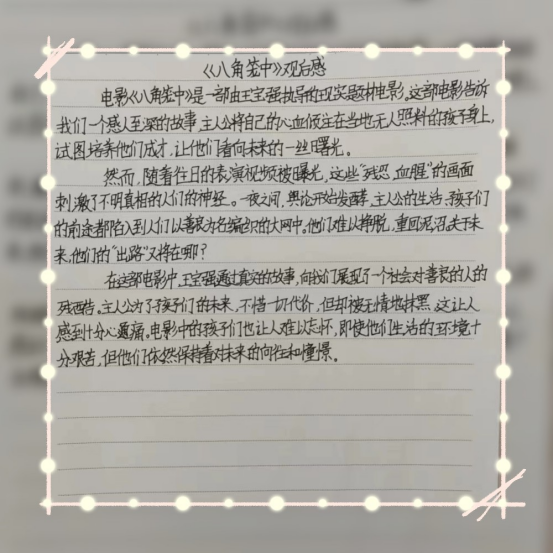 《八角笼中》观后感
电影《八角笼中》是一部由王宝强执导的现实题材电影。这部电影告诉
我们一个感人至深的故事，主人公将自己的心血倾注在当地无人照料的孩子身上，
试图培养他们成才，让他们看向未来的一丝曙光。
然而，随着往日的表演视频被曝光，这些“残忍、血腥”的画面
刺激了不明真相的人们的神经。一夜之间，舆论开始发酵，主人公的生活、孩子们
的前途都陷入到人们以善良为名编织的大网中。他们难以挣脱，重回泥沼，关于未
来，他们的“出路”又将在哪？
在这部电影中，王宝强通过真实的故事，向我们展现了一个社会对善良的人的
残酷。主人公为了孩子们的未来，不惜一切代价，但却被无情地抹黑，这让人
感到十分心痛。电影中的孩子们也让人难以忘怀，即使他们生活的环境十
分艰苦，但他们依然保持着对未来的向往和憧憬。